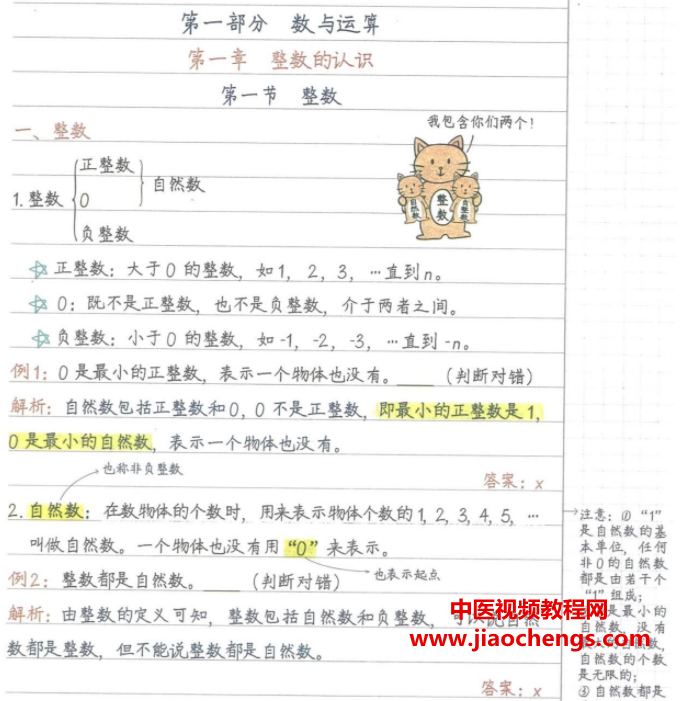 第一部分 数与运算
第一章 整数的认识
第一节 整数
我包含你们两个!
一、整数
正整数
1.整数 0 自然数
负整数
自然数 整数 负整数
正整数：大于0的整数，如1，2，3，…直到n。
0：既不是正整数，也不是负整数，介于两者之间。
负整数：小于0的整数，如-1，-2，-3，…直到-n。
例1：0是最小的正整数，表示一个物体也没有。____（判断对错）
解析：自然数包括正整数和0，0不是正整数，即最小的正整数是1，
0是最小的自然数，表示一个物体也没有。
也称非负整数
答案：x
2.自然数：在数物体的个数时，用来表示物体个数的1，2，3，4，5，…
叫做自然数。一个物体也没有用“0”来表示。
也表示起点
例2：整数都是自然数。____（判断对错）
解析：由整数的定义可知，整数包括自然数和负整数，可以说自然
数都是整数，但不能说整数都是自然数。
答案：x
注意：①“1”
是自然数的基
本单位，任何
非0的自然数
都是由若干个
“1”组成；
是最小的
自然数，没有
自然数，
自然数的个数
是无限的；
③自然数都是
中医视频教程网
www.jiaochengs.com